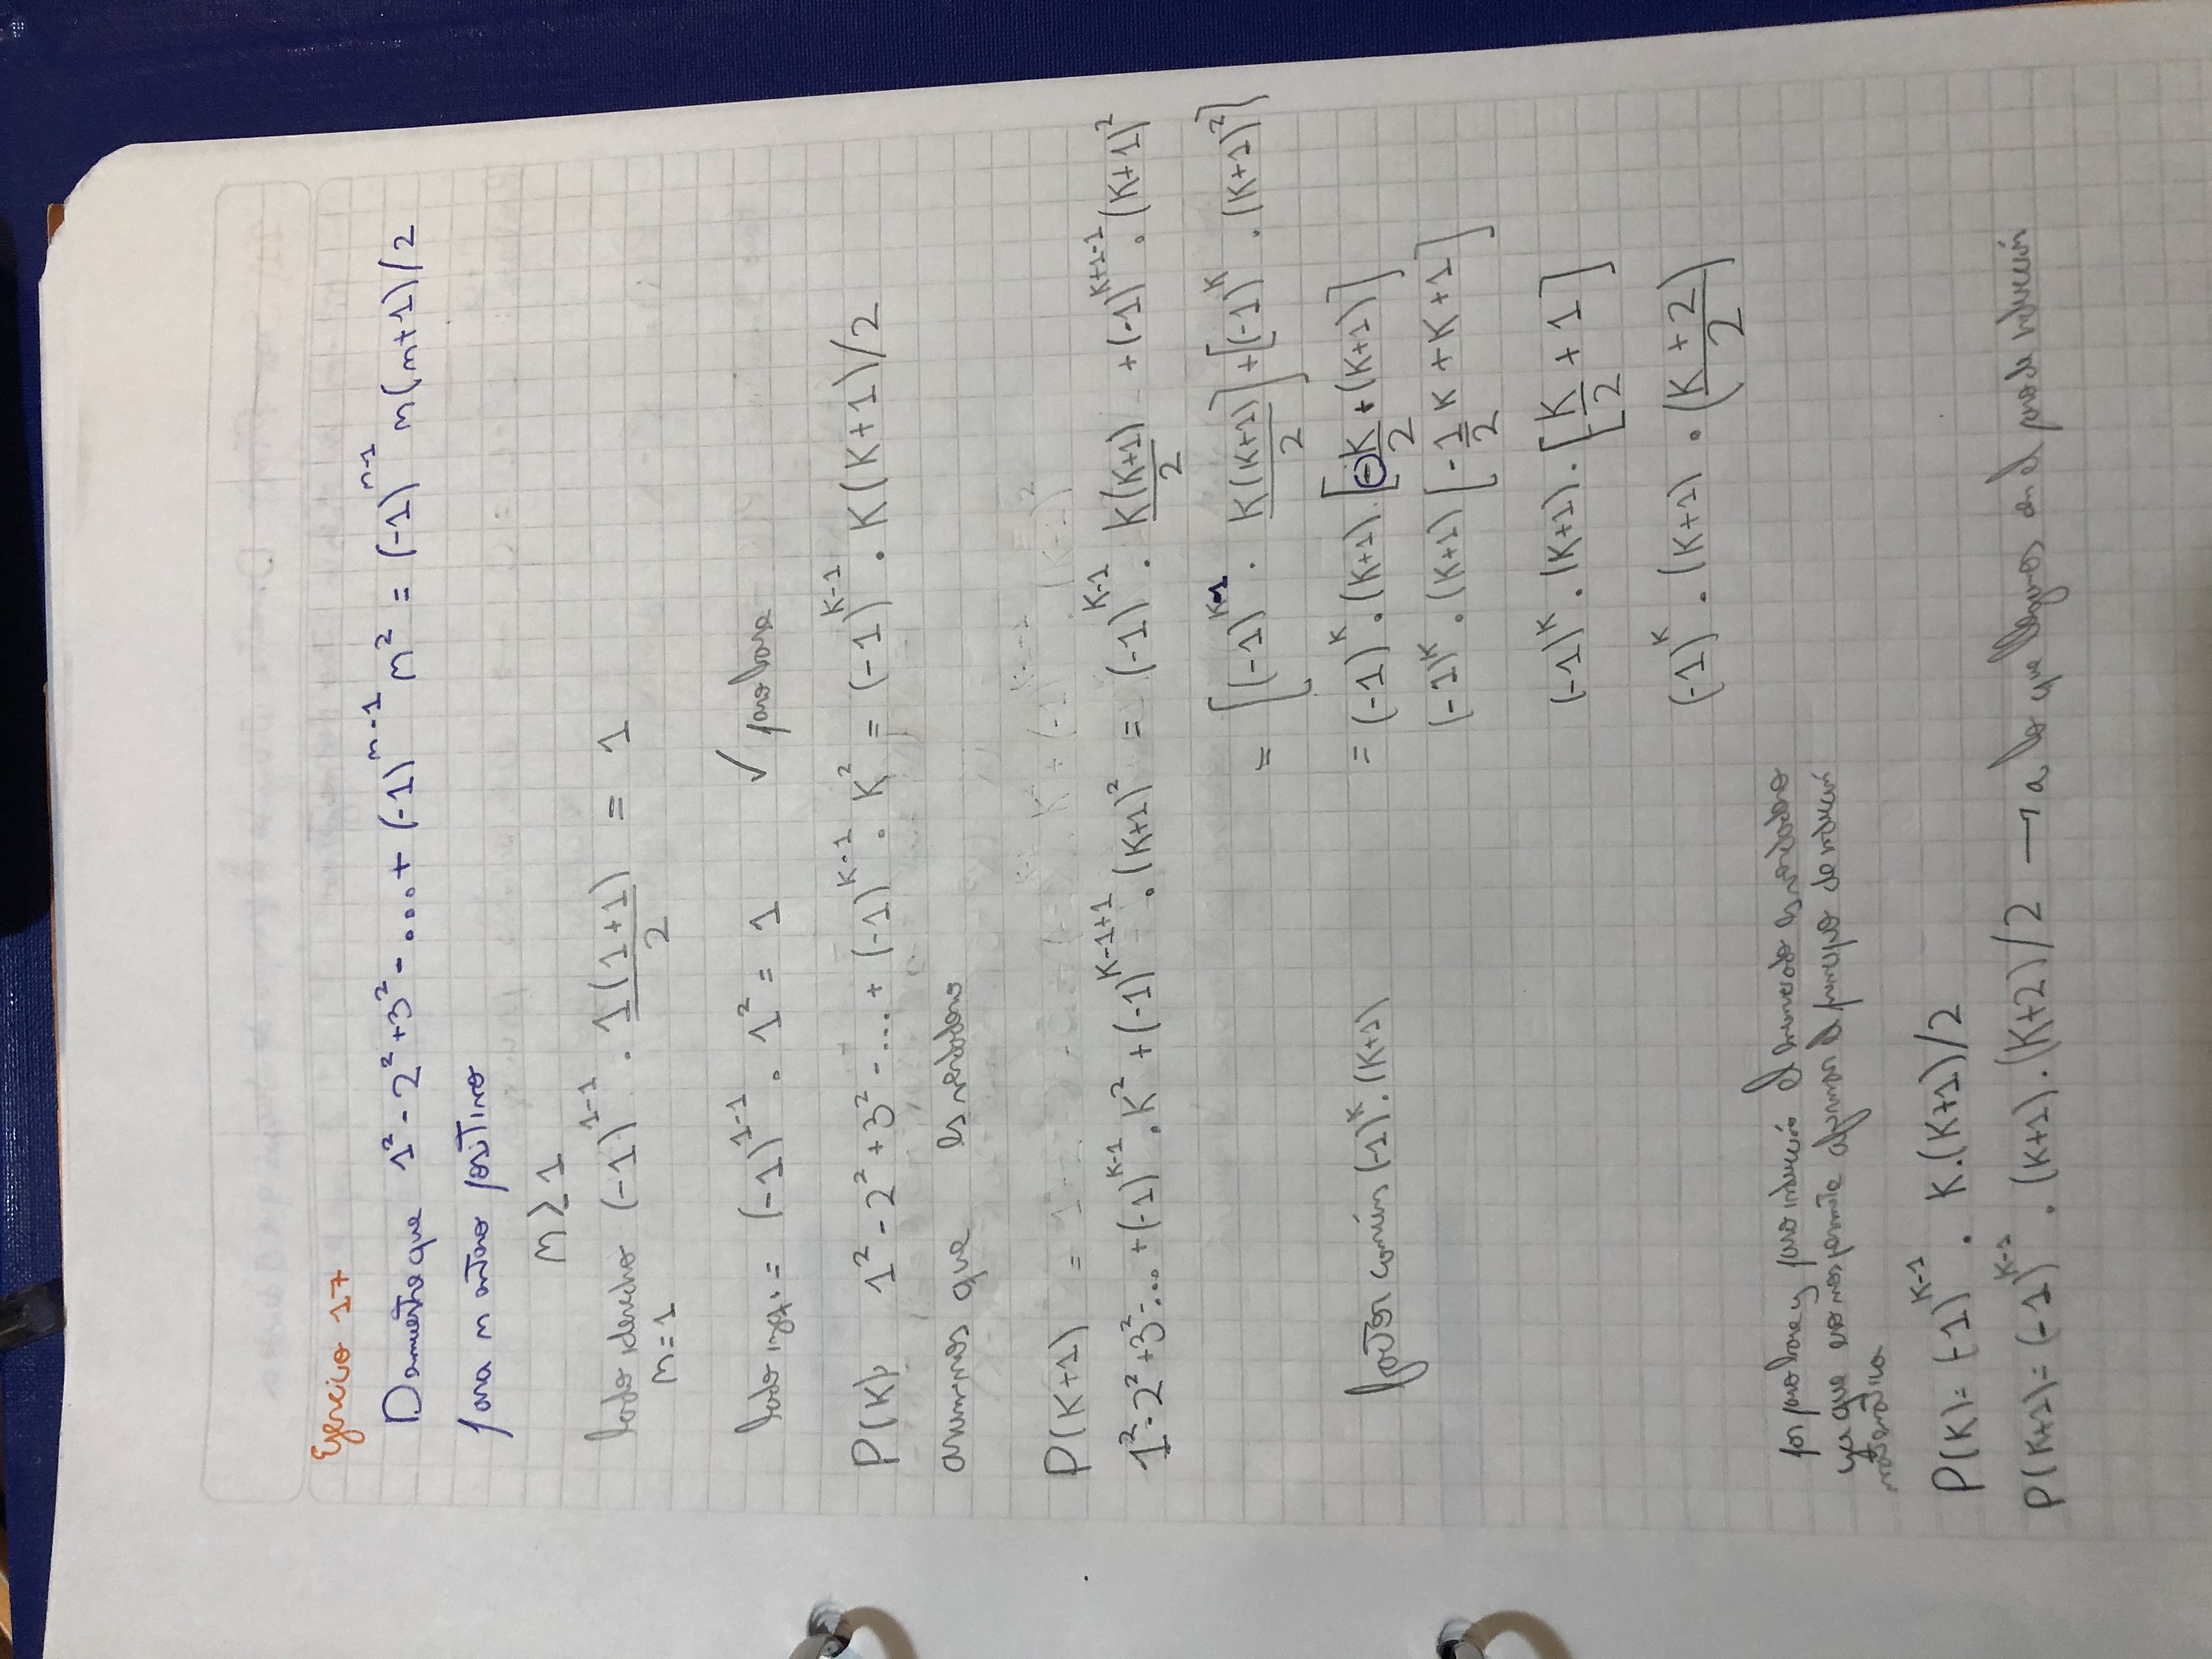 Ejercicio 17
Demuestre que 1² - 2² + 3² - ... + (-1)^(n-1) n² = (-1)^(n-1) n(n+1)/2
para n entero positivo
n ≥ 1
lado derecho (-1)^(1-1) . 1(1+1)/2 = 1
n=1
lado izq. = (-1)^(1-1) . 1² = 1 ✓ paso base
P(K): 1² - 2² + 3² - ... + (-1)^(K-1) . K² = (-1)^(K-1) . K(K+1)/2
asumimos que es verdadero
P(K+1) =
1² - 2² + 3² - ... + (-1)^(K-1) . K² + (-1)^(K-1+1) . (K+1)² = (-1)^(K-1) . K(K+1)/2 + (-1)^(K+1-1) . (K+1)²
= [(-1)^(K-1) . K(K+1)/2] + [(-1)^K . (K+1)²]
factor común (-1)^K . (K+1) = (-1)^K . (K+1) . [-K/2 + (K+1)]
(-1)^K . (K+1) [-1/2 K + K + 1]
(-1)^K . (K+1) . [K/2 + 1]
(-1)^K . (K+1) . (K+2/2)
por paso base y paso inducción el enunciado es verdadero
ya que eso nos permite afirmar el principio de inducción
matemática
P(K) = (-1)^(K-1) . K.(K+1)/2
P(K+1) = (-1)^(K-1) . (K+1) . (K+2)/2 → a lo que llegamos en el paso de inducción